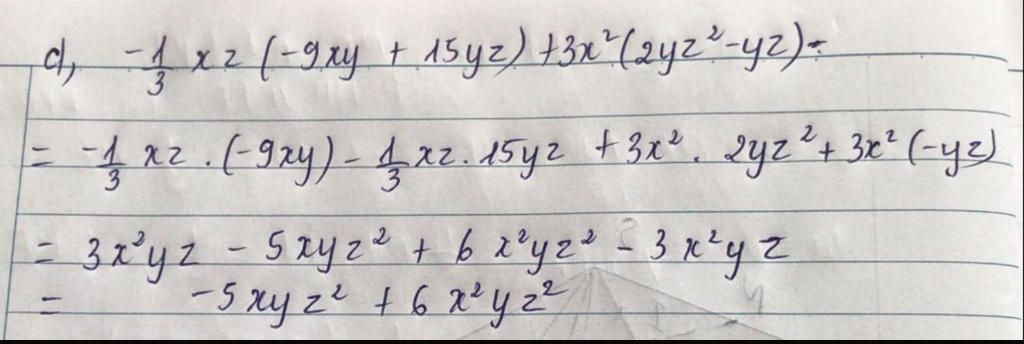 d, -1/3 xz (-9xy + 15yz) + 3x²(2yz² - yz) =
= -1/3 xz . (-9xy) - 1/3 xz . 15yz + 3x² . 2yz² + 3x² (-yz)
= 3x²yz - 5xyz² + 6x²yz² - 3x²yz
= -5xyz² + 6x²yz²